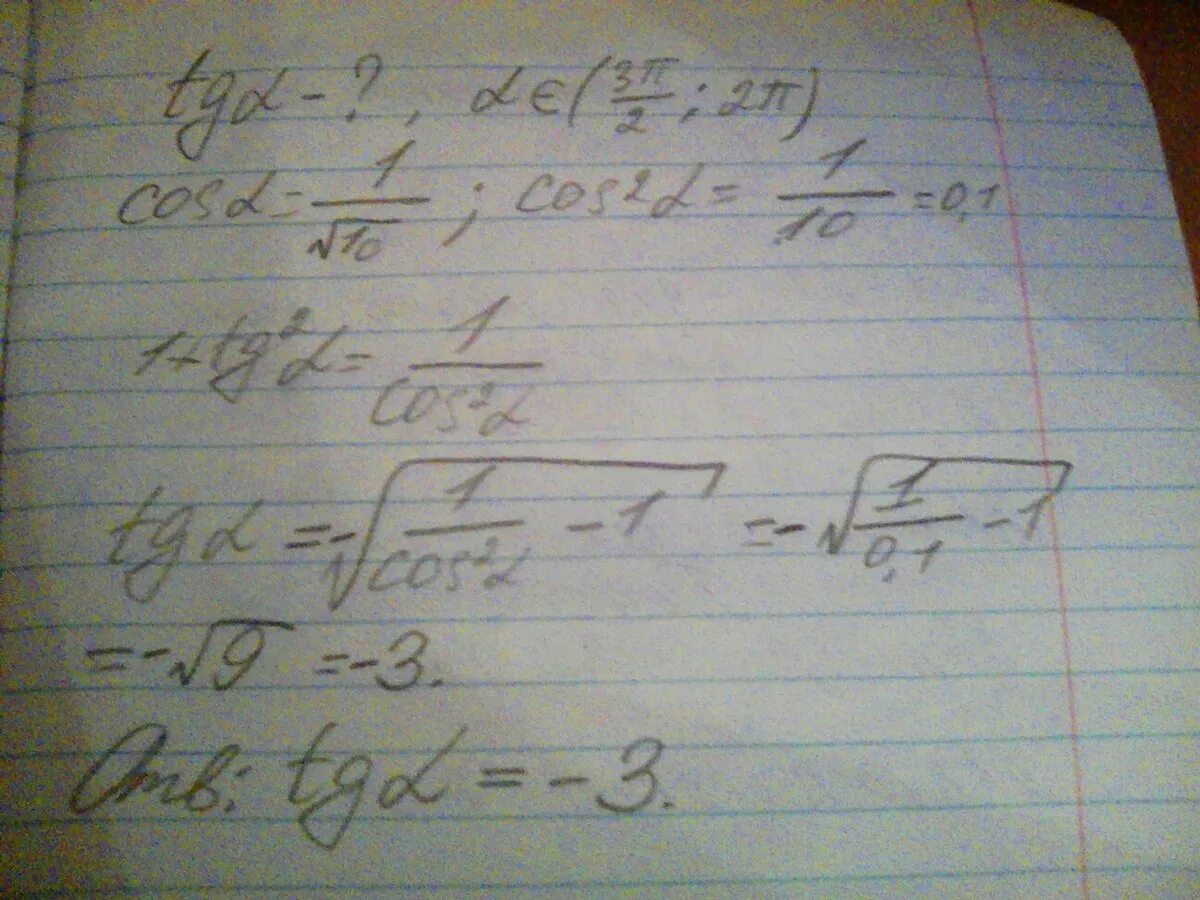 tgα - ?, α ∈ (3π/2 ; 2π)
cosα = 1/√10 ; cos2α = 1/10 = 0,1
1 + tg²α = 1/cos²α
tgα = -√(1/cos²α - 1) = -√(1/0,1 - 1)
= -√9 = -3.
Отв: tgα = -3.